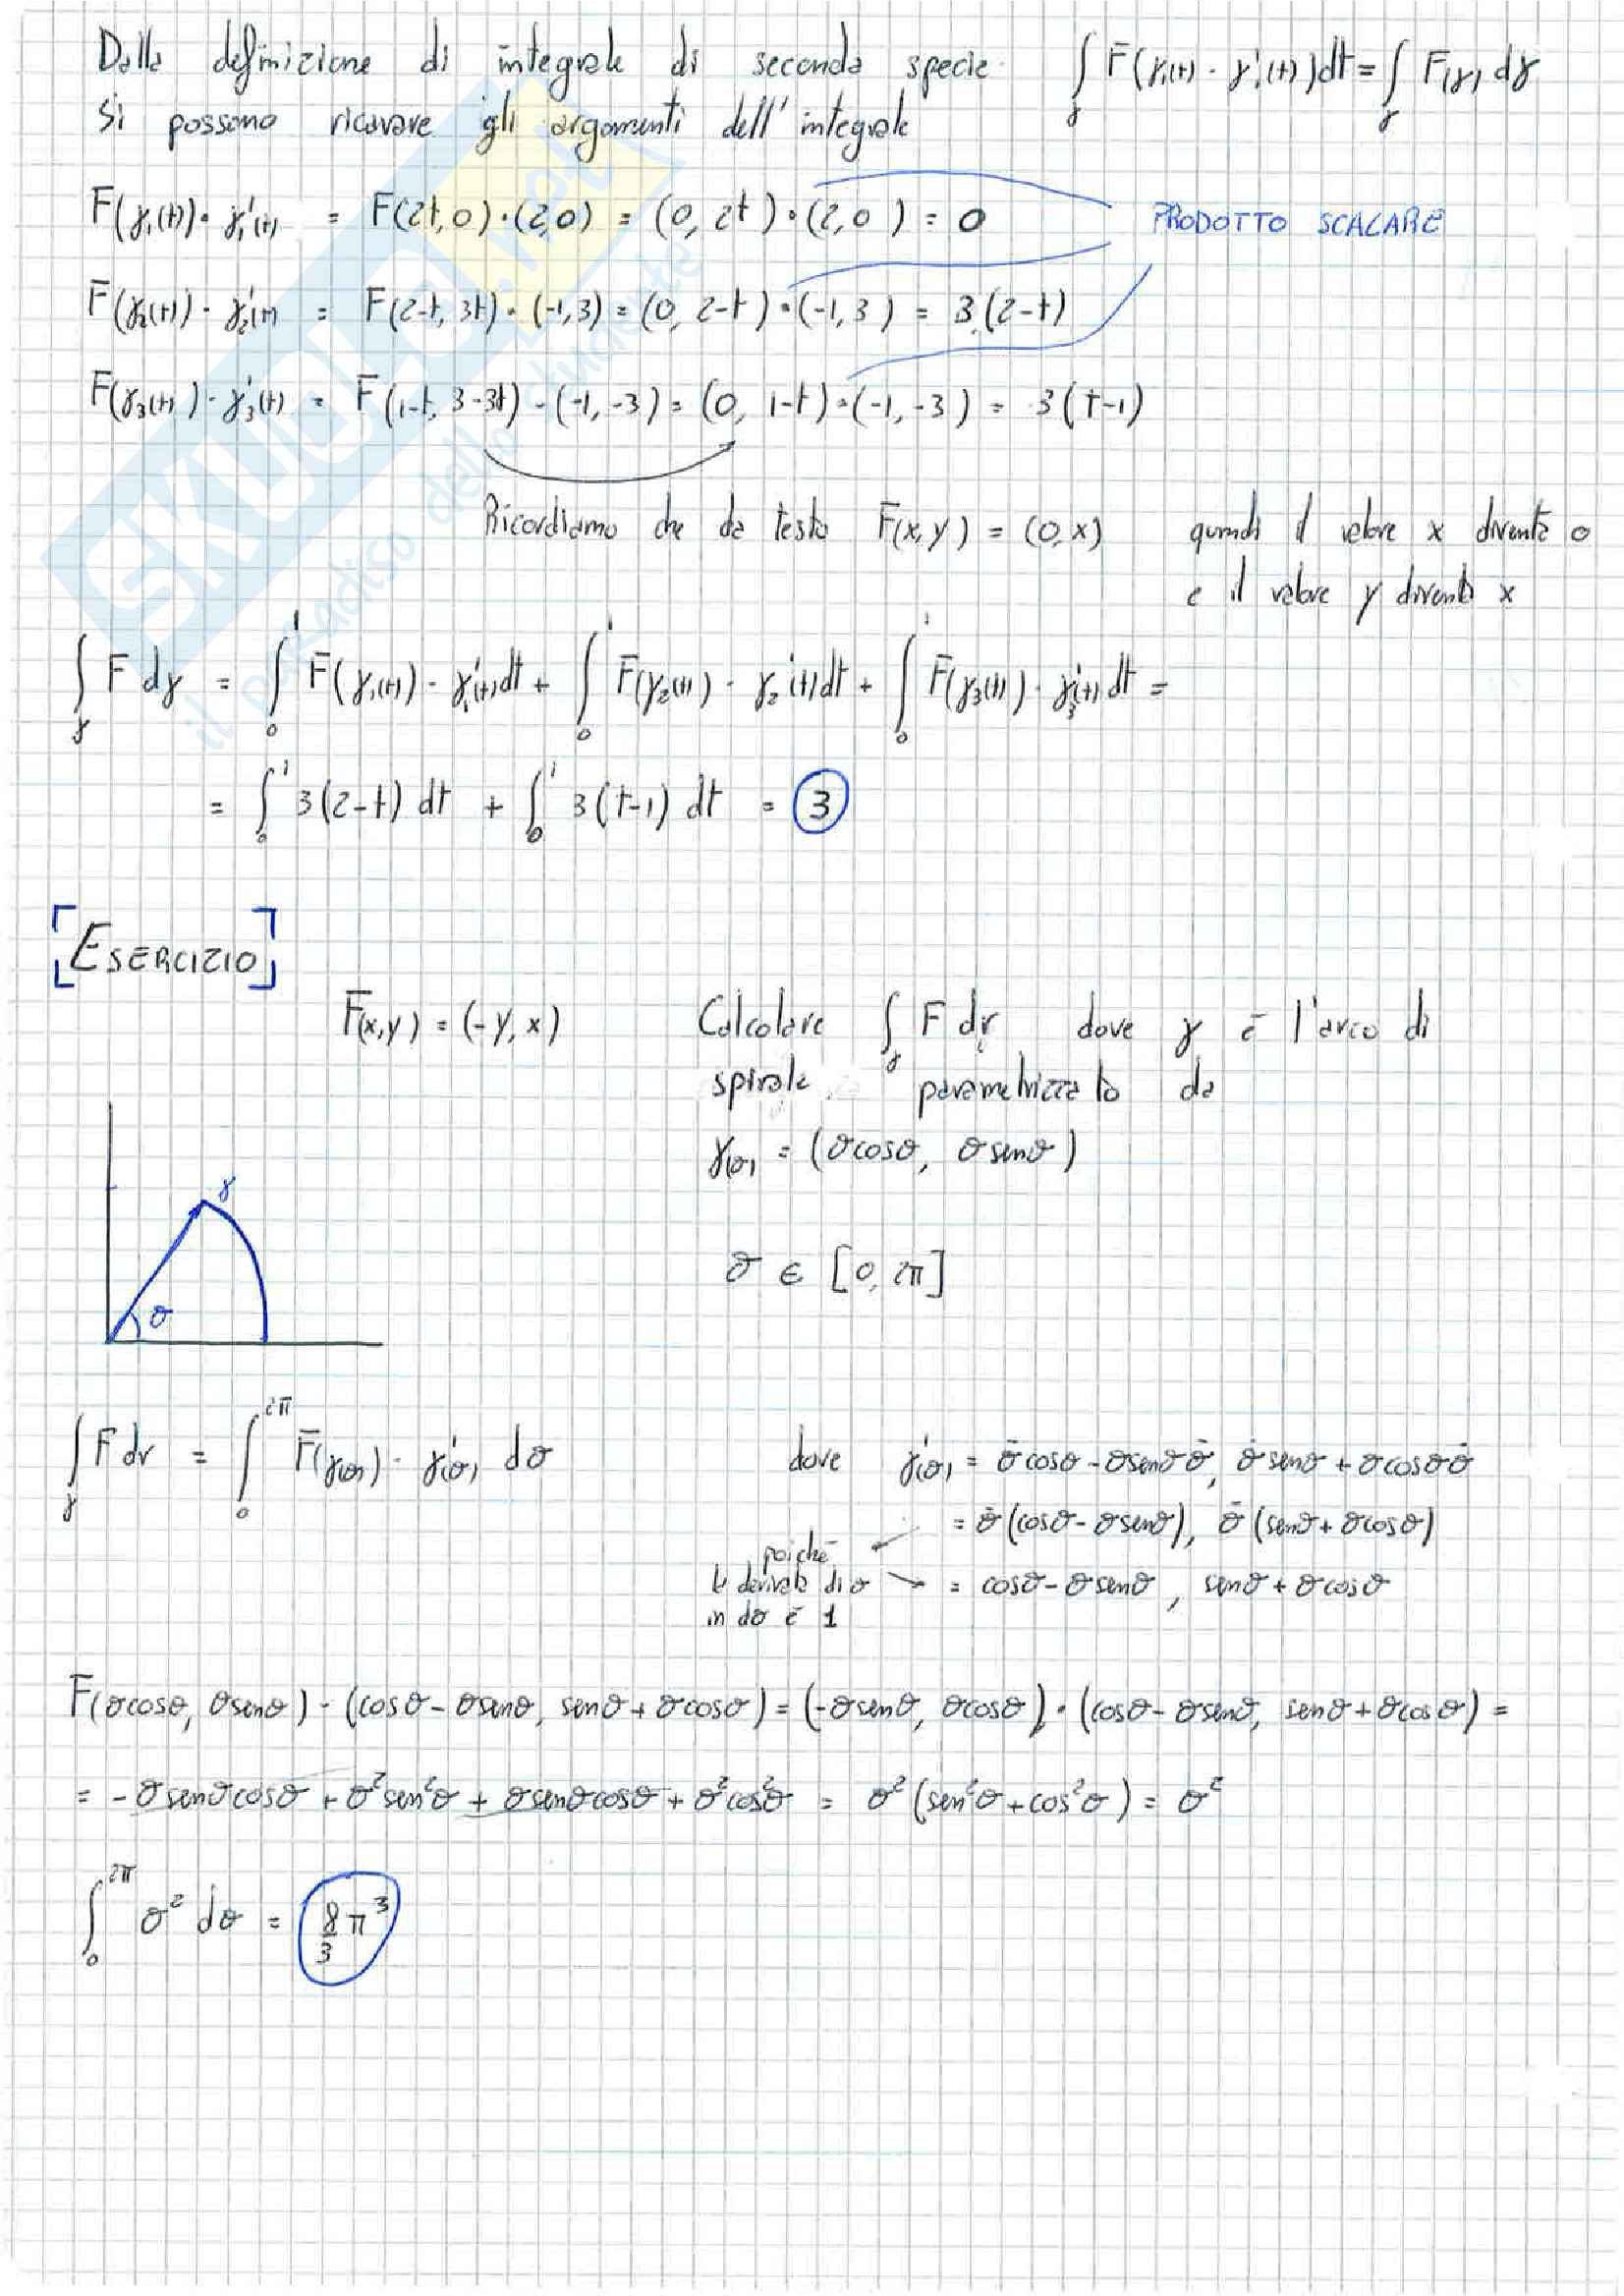 Dalla definizione di integrale di seconda specie ∫γ F̄(γ₁(t) · γ'₁(t))dt = ∫γ F(γ) dγ
Si possono ricavare gli argomenti dell'integrale
F(γ₁(t)) · γ'₁(t) = F(2t,0)·(2,0) = (0, 2t)·(2,0) = 0 PRODOTTO SCALARE
F(γ₂(t)) · γ'₂(t) = F(2-t, 3t)·(-1,3) = (0, 2-t)·(-1,3) = 3(2-t)
F(γ₃(t)) · γ'₃(t) = F(1-t, 3-3t) · (-1,-3) = (0, 1-t)·(-1,-3) = 3(t-1)
Ricordiamo che da testo F(x,y) = (0,x) quindi il valore x diventa 0
e il valore y diventa x
∫γ F dγ = ∫₀¹ F(γ₁(t)) · γ'₁(t)dt + ∫₀¹ F(γ₂(t)) · γ₂'(t)dt + ∫₀¹ F(γ₃(t)) · γ'₃(t)dt =
= ∫₀¹ 3(2-t) dt + ∫₀¹ 3(t-1) dt = 3
[ESERCIZIO]
F(x,y) = (-y, x) Calcolare ∫γ F dr dove γ è l'arco di
spirale parametrizzato da
γ(θ) = (θcosθ, θsenθ)
γ
θ
θ ∈ [0, 2π]
∫γ F dr = ∫₀^2π F(γ(θ)) · γ'(θ) dθ dove γ'(θ) = θ̇cosθ - θsenθθ̇, θ̇senθ + θcosθθ̇
= θ̇(cosθ - θsenθ), θ̇(senθ + θcosθ)
poiché
la derivata di θ = cosθ - θsenθ, senθ + θcosθ
in dθ è 1
F(θcosθ, θsenθ) · (cosθ - θsenθ, senθ + θcosθ) = (-θsenθ, θcosθ) · (cosθ - θsenθ, senθ + θcosθ) =
= -θsenθcosθ + θ²sen²θ + θsenθcosθ + θ²cos²θ = θ²(sen²θ + cos²θ) = θ²
∫₀^2π θ² dθ = 8/3 π³
SKUOLA.net
il paradiso dello studente